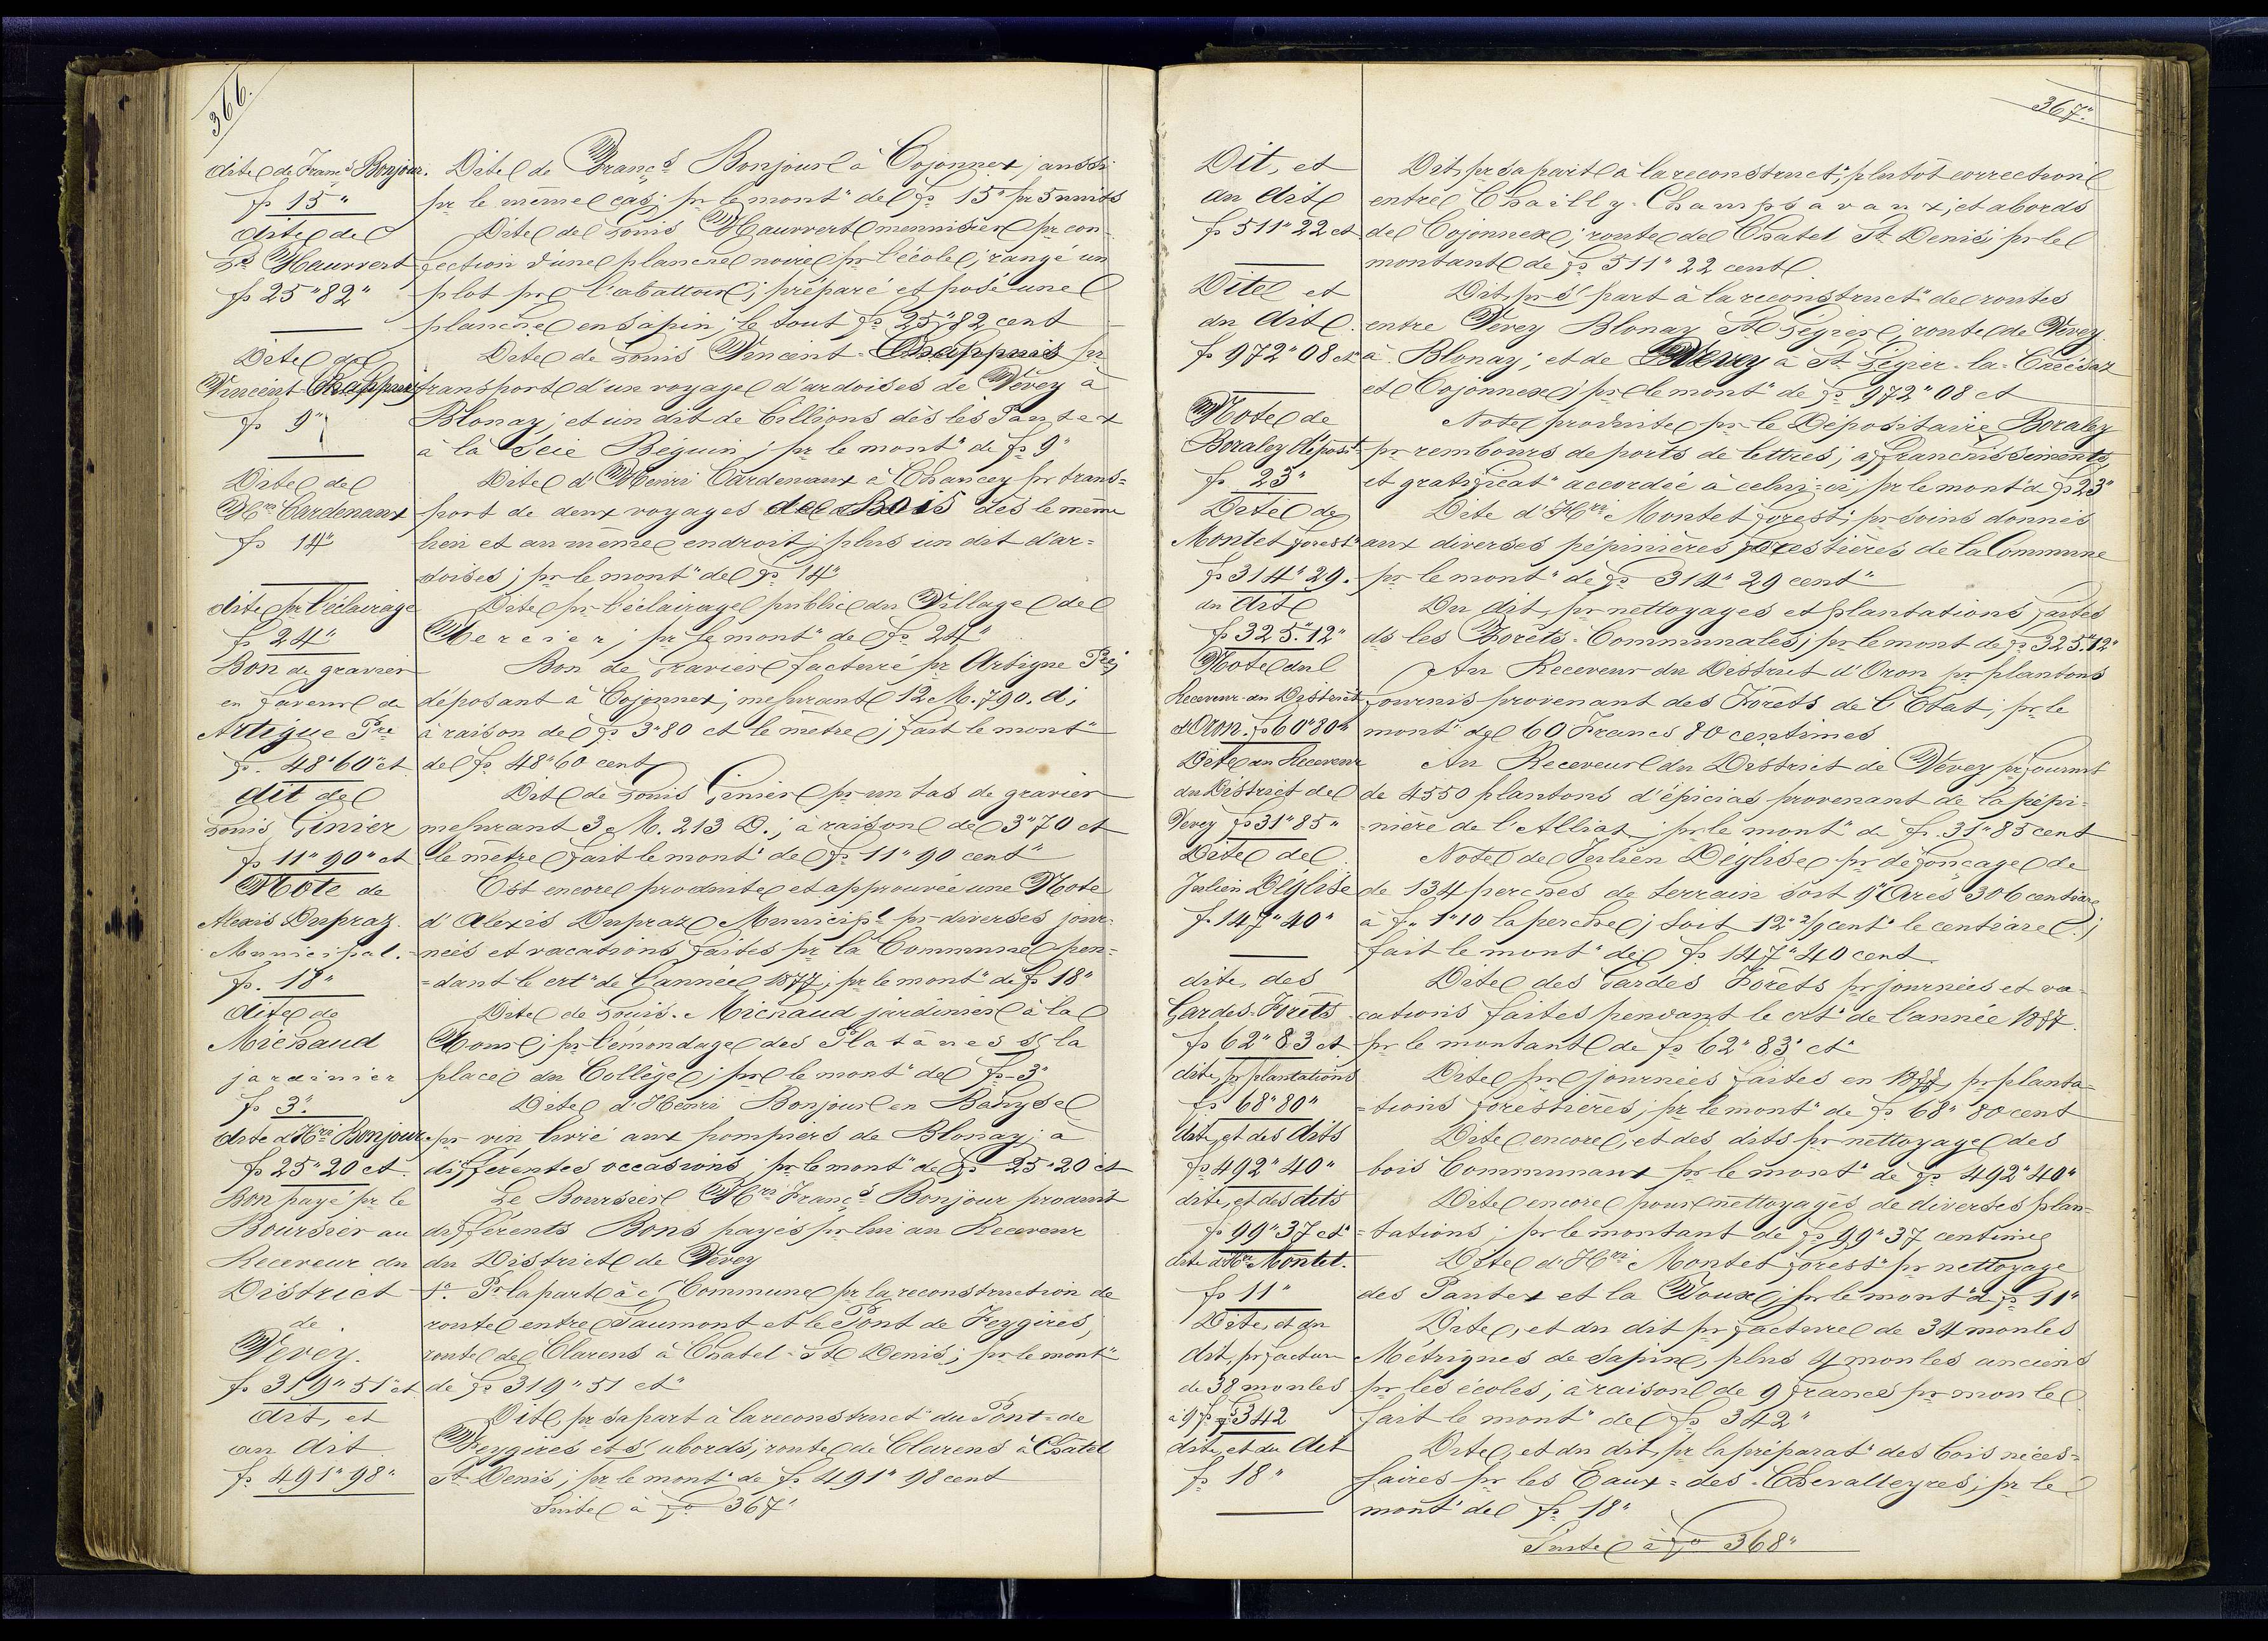 366.
dite de Franç.s Bonjour.
fs 15"
dite de
Ls Maurvert
fs 25"82"
Dite de
Vincent-Chappuis
fs 9"
Dite de
Hri Cardenaux
fs 14"
dite pr l'éclairage
fs 24"
Bon de gravier
en faveur de
Artigue Pre
fs. 48"60"ct
dit de
Louis Génier
fs 11"90"ct
Note de
Alexis Dupraz.
Municipal.
fs. 18"
dite de
Michaud
jardinier
fs 3".
dite d'Hri Bonjour.
fs 25"20 ct.
Bon payé pr le
Boursier au
Receveur du
District
de
Vevey.
fs 319"51"ct
dit, et
au dit
fs 491"98"
Dite de Franç.s Bonjour à Cojonnex; aussi
pr le même cas; pr le mont" de fs 15" pr 5 nuits
Dite de Louis Maurvert menuisier pr con-
fection d'une planche noire pr l'école; rangé un
plot pr l'abattoir; préparé et posé une
planche en sapin; le tout fs 25"82 cent
Dite de Louis Vincent-Chappuis pr
transport d'un voyage d'ardoises de Vevey à
Blonay; et un dit de billions dès les Pautex
à la Scie Béguin; pr le mont" de fs 9"
Dite d'Henri Cardenaux à Chancey pr trans=
port de deux voyages de Bois dès le même
lieu et au même endroit; plus un dit d'ar=
doises; pr le mont" de fs 14"
Dite pr l'éclairage public du Village de
Mercier; pr le mont" de fs 24"
Bon de Gravier facturé pr Artigue Pre;
déposant à Cojonnex; mesurant 12 M. 790. d;
à raison de fs 3"80 ct le mètre; fait le mont"
de fs 48"60 cent
Dit de Louis Génier pr un tas de gravier
mesurant 3 M. 213 D.; à raison de 3"70 ct
le mètre fait le mont" de fs 11"90 cent"
Est encore produite et approuvée une Note
d'Alexis Dupraz Municipl pr diverses jour-
nées et vacations faites pr la Commune pen-
=dant le crt" de l'année 1877; pr le mont" de fs 18"
Dite de Louis. Michaud jardinier à la
Tour; pr l'émondage des Platanes s/ la
place du Collège; pr le mont" de fs 3"
Dite d'Henri Bonjour en Bahyse
pr vin livré aux pompiers de Blonay; à
différentes occasions; pr le mont" de fs 25"20 ct
Le Boursier Hri Franç.s Bonjour produit
différents Bons payés pr lui au Receveur
du District de Vevey
1°. Pr la part à c/ Commune pr la reconstruction de
route entre Saumont et le Pont de Feygires;
route de Clarens à Chatel-St Denis; pr le mont"
de fs 319"51 ct"
Dit, pr sa part à la reconstruct" du Pont-de
Feygires et s/ abords, route de Clarens à Châtel
St Denis; pr le mont" de fs 491"98 cent
Suite à fo 367"
367."
Dit, et
au dit
fs 511"22 ct
Dite et
du dit.
fs 972"08 ct
Note de
Boraley déposit.
fs 23"
Dite de
Montet forest"
fs 314"29.
du dit
fs 325"12"
Note du
Receveur du District
d'Oron. fs 60"80"
Dite au Receveur
du District de
Vevey fs 31"85"
Dite de
Julien Déglise
fs 147"40"
dite, des
Gardes-Forêts
fs 62"83 ct
dite, pr plantations
fs 68"80"
dite, et des dits
fs 492"40"
dite, et des dits
fs 99"37 ct"
dite d'Hri Montet.
fs 11"
Dite, et du
dit, pr factur
de 38 moules
à 9 fs fs 342
dite, et du dit
fs 18"
Dit, pr sa part à la reconstruct"; plutôt correction
entre Chailly-Champsavaux; et abords
de Cojonnex; route de Chatel St Denis; pr le
montant de fs 511"22 cent
Dit, pr s/ part à la reconstruct" de routes
entre Vevey Blonay St Légier; route de Vevey
à Blonay; et de Vevey à St Légier-la-Chiésaz
et Cojonnex; pr le mont" de fs 972"08 ct
Note produite pr le Dépositaire Boraley
pr rembours de ports de lettres; affranchissements,
et gratificat" accordée à celui-ci; pr le mont" d fs 23"
Dite d'Hri Montet forest; pr soins donnés
aux diverses pépinières forestières de la Commune
pr le mont" de fs 314"29 cent"
Du dit, pr nettoyages et plantations faites
ds les Forêts-Communales; pr le mont de fs 325"12"
Au Receveur du District d'Oron pr plantons
fournis provenant des Forêts de l'Etat; pr le
mont" de 60 Francs 80 centimes
Au Receveur du District de Vevey pr fournit
de 4550 plantons d'épicias provenant de la pépi-
nière de l'Alliaz; pr le mont" de fs. 31"85 cent
Note de Julien Déglise pr défonçage de
de 134 perches de terrain soit 9" Ares 306 centiare
à fs 1"10 la perche; soit 12" 2/9 cent" le centiare;
fait le mont" de fs 147"40 cent
Dite des Gardes Forêts pr journées et va-
cations faites pendant le crt" de l'année 1877.
pr le montant de fs 62"83" ct"
Dite pr journées faites en 1877, pr planta-
=tions forestières; pr le mont" de fs 68"80 cent
Dite encore, et des dits pr nettoyage des
bois Communaux pr le mont" de fs 492"40"
Dite encore pour nettoyages de diverses plan-
=tations; pr le montant de fs 99"37 centimes
Dite d'Hri Montet forest" pr nettoyage
des Pautex et la Doux; pr le mont" d fs 11"
Dite, et du dit pr facture de 34 moules
Métriques de sapin, plus 4 moules anciens
pr les écoles; à raison de 9 francs pr moule
fait le mont" de fs 342"
Dite, et du dit, pr la préparat" des bois néces=
saires pr les Eaux-des-Chevalleyres; pr le
mont" de fs 18"
Suite à fo 368"